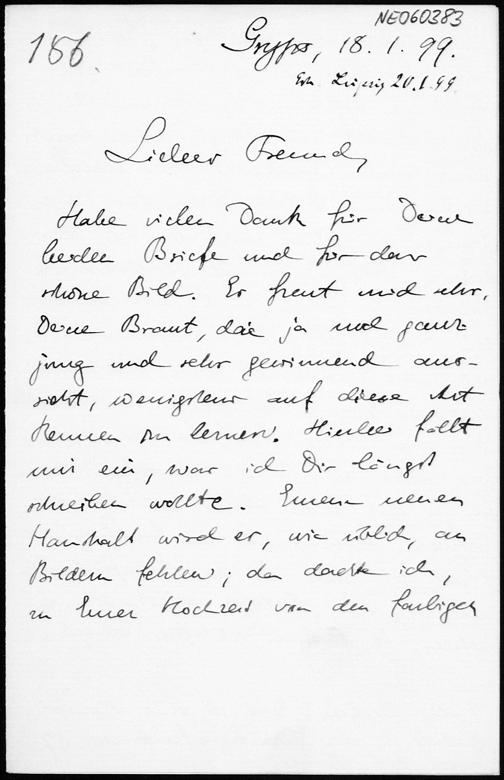 NE060383
156.
Gryps, 18. 1. 99.
Erh. Leipzig 20.1.99.
Lieber Freund,
Habe vielen Dank für Deine
beiden Briefe und für das
schöne Bild. Es freut mich sehr,
Deine Braut, die ja noch ganz
jung und sehr gewinnend aus-
sieht, wenigstens auf diese Art
kennen zu lernen. Hierbei fällt
mir ein, was ich Dir längst
schreiben wollte. Eurem neuen
Haushalt wird es, wie üblich, an
Bildern fehlen; da dachte ich,
zu Eurer Hochzeit von den farbigen